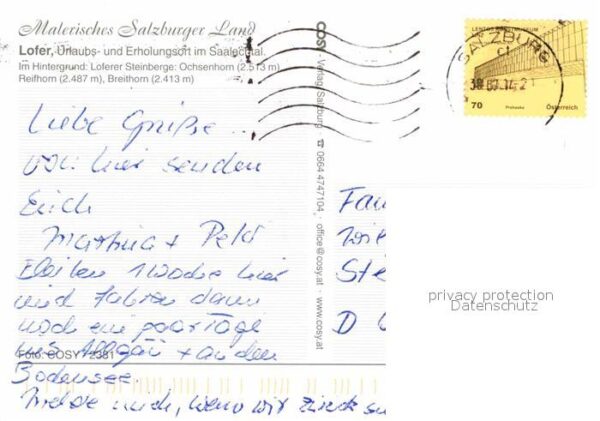 Malerisches Salzburger Land
Lofer, Urlaubs- und Erholungsort im Saalachtal.
Im Hintergrund: Loferer Steinberge: Ochsenhorn (2.513 m)
Reifhorn (2.487 m), Breithorn (2.413 m)
Liebe Grüße
von hier senden
Euch
Martina + Peti
Bleiben 1 Woche hier
und fahren dann
noch ein paar Tage
ins Allgäu + an den
Bodensee.
Melde mich, wenn wir zurück
Foto: COSY 2381
COSY Verlag, Salzburg ☎ 0664 4747104 · office@cosy.at · www.cosy.at
SALZBURG
70
Österreich
Fam
Ste
D
privacy protection
Datenschutz